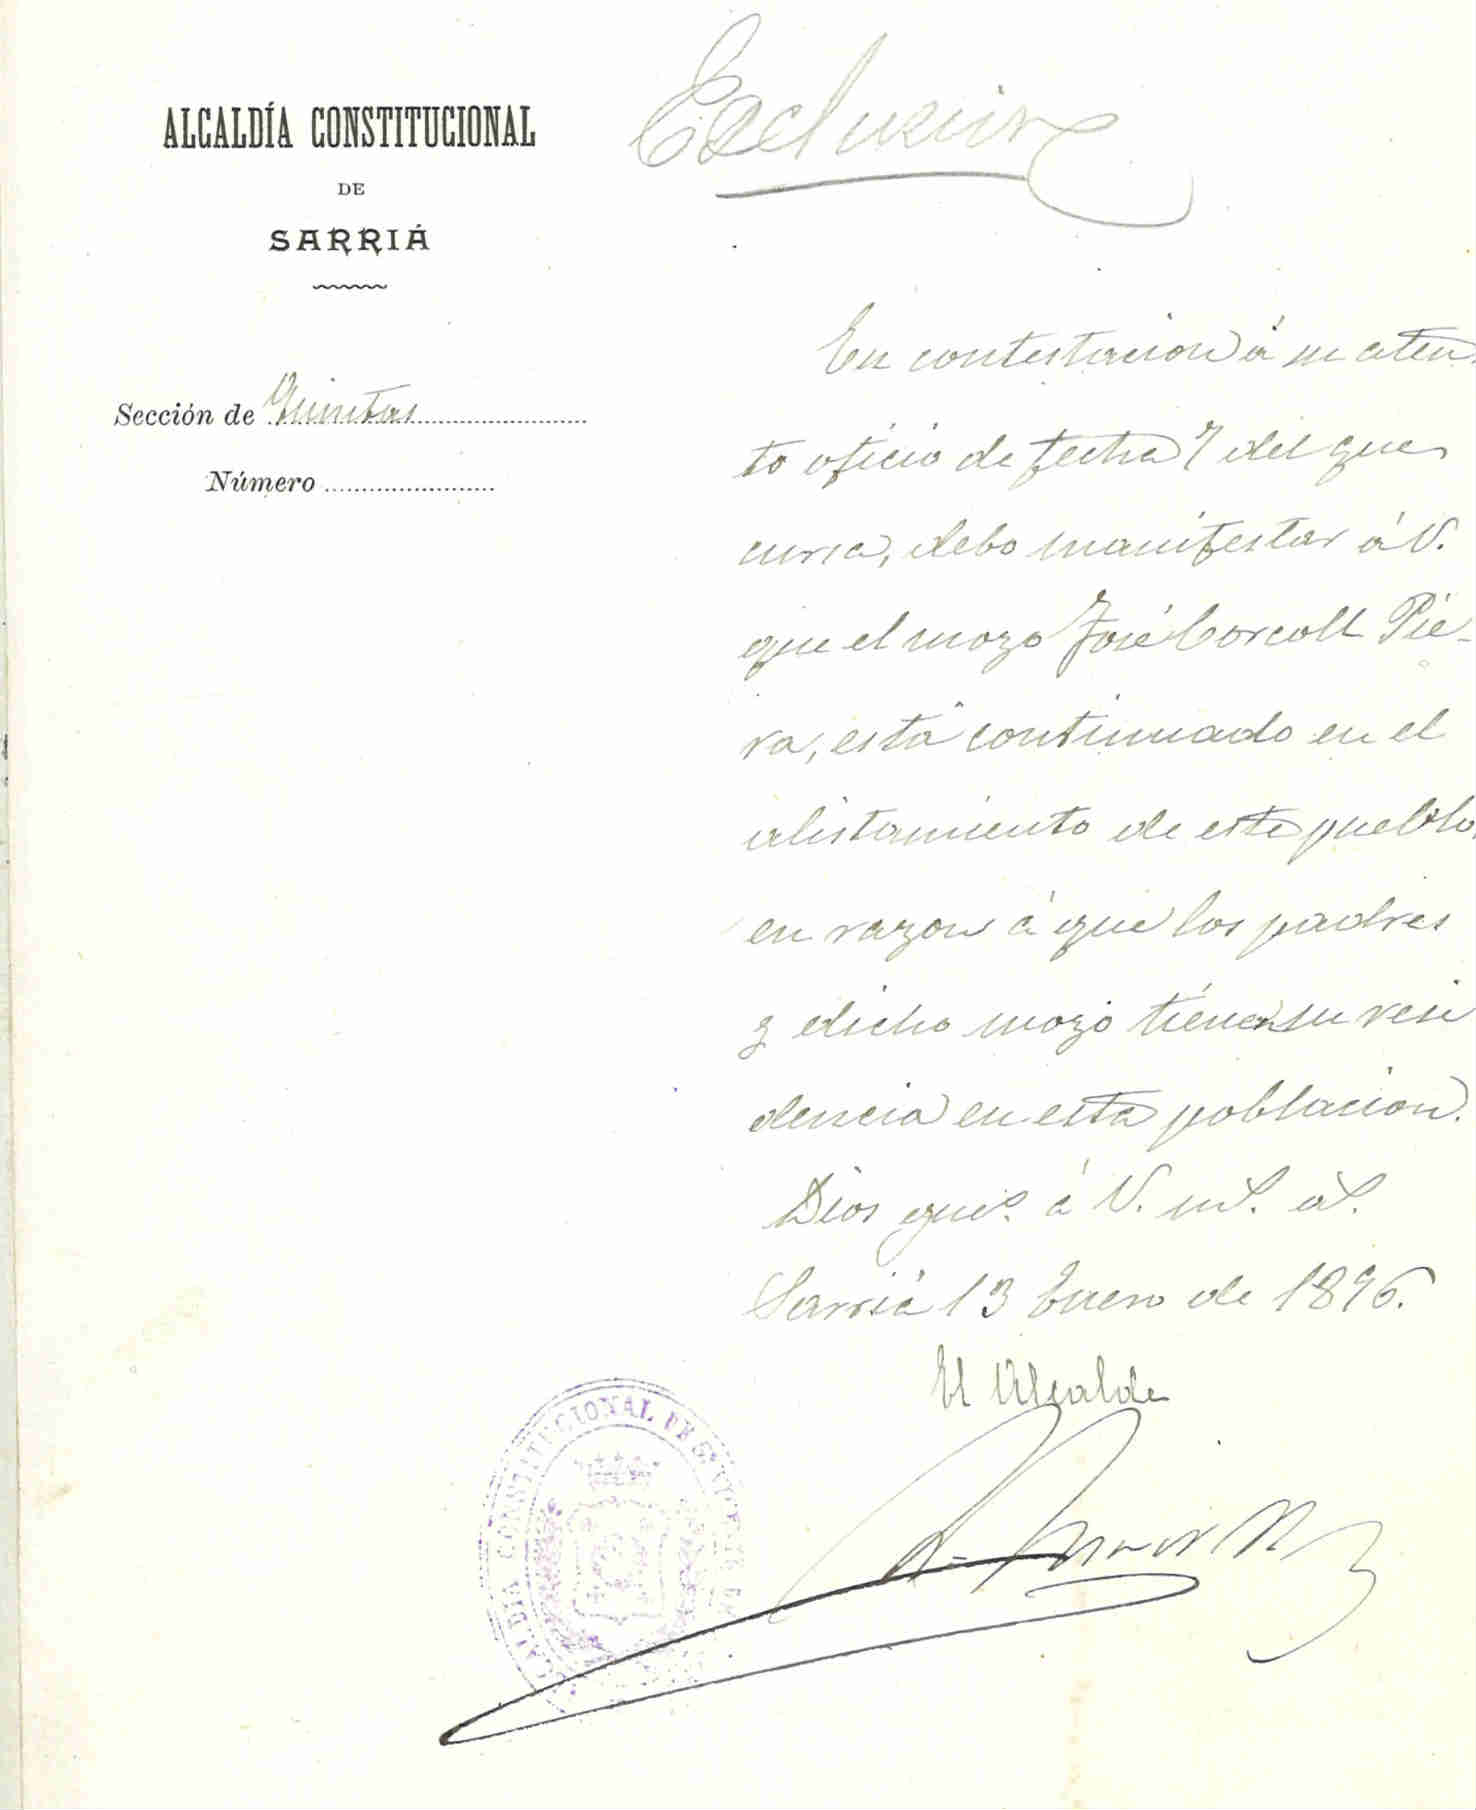 ALCALDÍA CONSTITUCIONAL
DE
SARRIÁ
Sección de Quintas
Número
Exclusion
En contestacion á su aten
to oficio de fecha 7 del que
cursa, debo manifestar á V.
que el mozo José Corcoll Pie-
ra, está continuado en el
alistamiento de este pueblo,
en razon á que los padres
y dicho mozo tienen su resi
dencia en esta poblacion.
Dios gue. á V. ms. as.
Sarriá 13 Enero de 1896.
El Alcalde
ALCALDIA CONSTITUCIONAL DE Sn. VICENTE DE